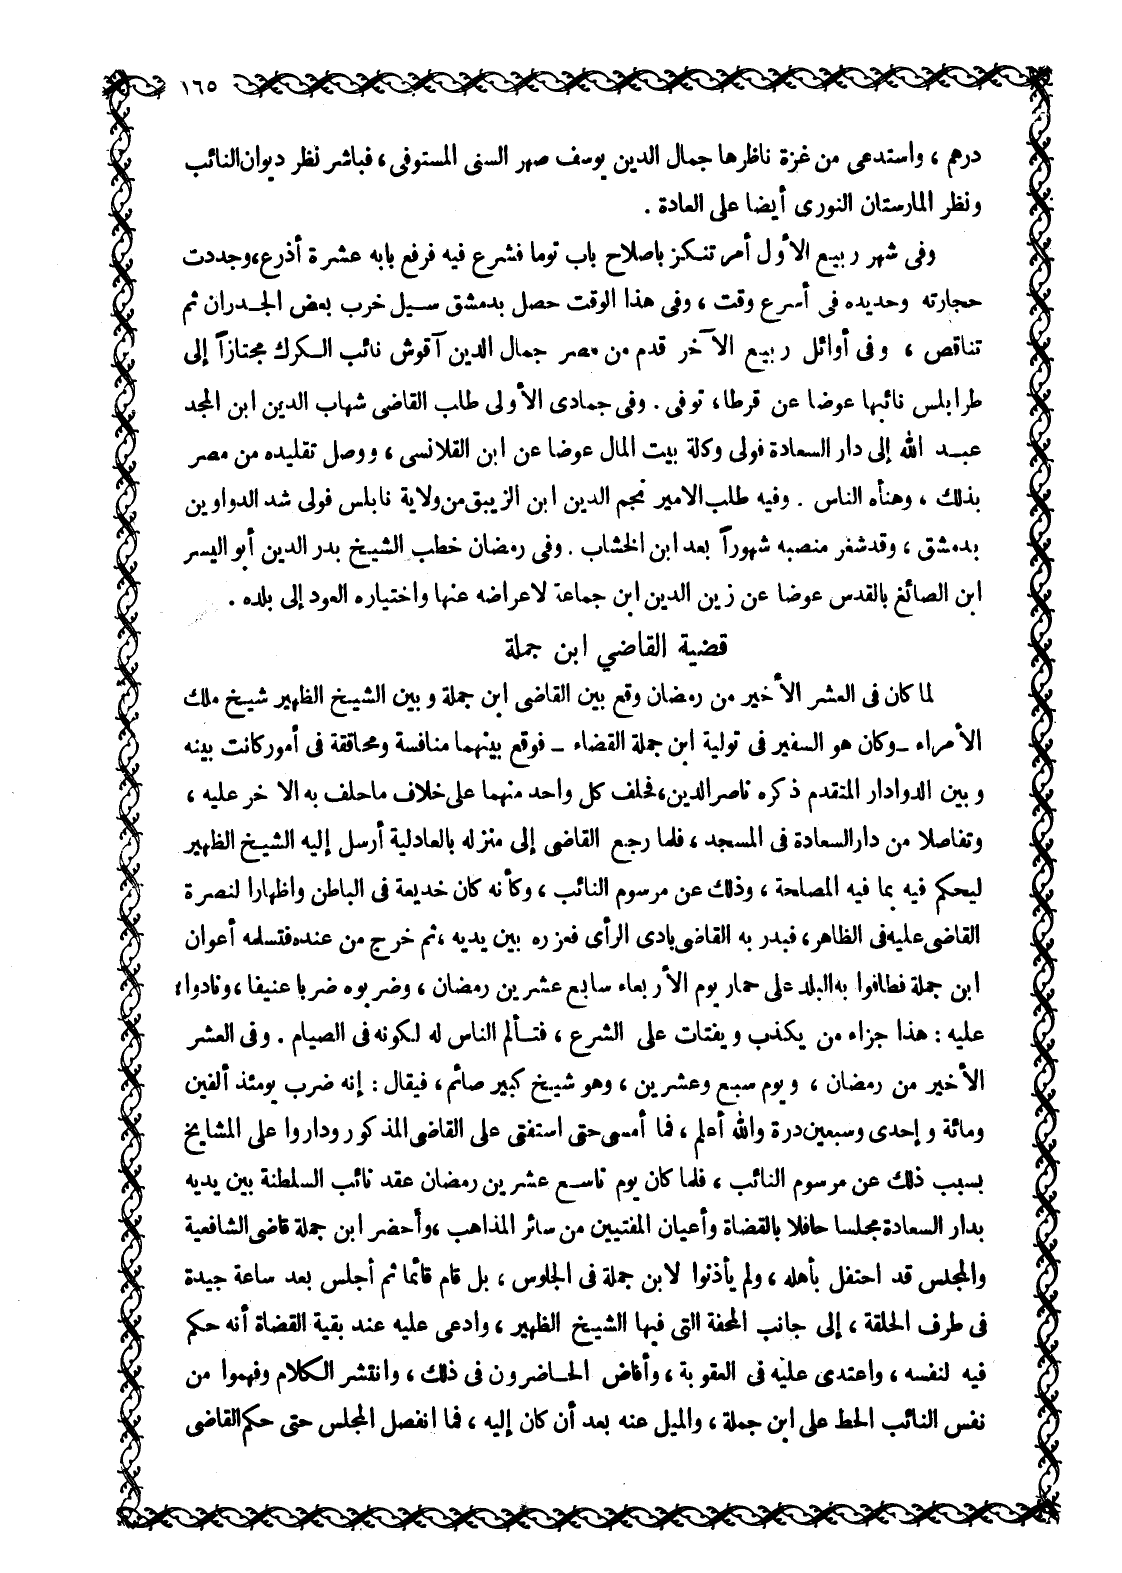 ١٦٥
درهم ، واستدعى من غزة ناظرها جمال الدين يوسف صهر السنى المستوفى ، فباشر نظر ديوان النائب
ونظر المارستان النورى أيضا على العادة .
وفى شهر ربيع الأول أمر تنكز باصلاح باب توما فشرع فيه فرفع بابه عشرة أذرع ، وجددت
حجارته وحديده فى أسرع وقت ، وفى هذا الوقت حصل بدمشق سيل خرب بعض الجدران ثم
تناقص ، وفى أوائل ربيع الآخر قدم من مصر جمال الدين آقوش نائب الكرك مجتازاً إلى
طرابلس نائبها عوضا عن قرطاء توفى . وفى جمادى الأولى طلب القاضى شهاب الدين ابن المجد
عبد الله إلى دار السعادة فولى وكالة بيت المال عوضا عن ابن القلانسى ، ووصل تقليده من مصر
بذلك ، وهنأه الناس . وفيه طلب الامير نجم الدين ابن الزيبق من ولاية نابلس فولى شد الدواوين
بدمشق ، وقد شغر منصبه شهوراً بعد ابن الخشاب . وفى رمضان خطب الشيخ بدر الدين أبو اليسر
ابن الصائغ بالقدس عوضا عن زين الدين ابن جماعة لاعراضه عنها واختياره العود إلى بلده .
قضية القاضي ابن جملة
لما كان فى العشر الأخير من رمضان وقع بين القاضى ابن جملة وبين الشيخ الظهير شيخ ملك
الأمراء ــ وكان هو السفير فى تولية ابن جملة القضاء ــ فوقع بينهما منافسة ومحاققة فى أمور كانت بينه
وبين الدوادار المتقدم ذكره ناصر الدين ، فحلف كل واحد منهما على خلاف ما حلف به الآخر عليه ،
وتفاصلا من دار السعادة فى المسجد ، فلما رجع القاضى إلى منزله بالعادلية أرسل إليه الشيخ الظهير
ليحكم فيه بما فيه المصلحة ، وذلك عن مرسوم النائب ، وكأنه كان خديعة فى الباطن واظهارا لنصرة
القاضى عليه فى الظاهر ، فبدر به القاضى بادى الرأى فعزره بين يديه ، ثم خرج من عنده فتسلمه أعوان
ابن جملة فطافوا به البلد على حمار يوم الأربعاء سابع عشرين رمضان ، وضربوه ضربا عنيفا ، ونادوا
عليه : هذا جزاء من يكذب ويفتات على الشرع ، فتألم الناس له لكونه فى الصيام . وفى العشر
الأخير من رمضان ، ويوم سبع وعشرين ، وهو شيخ كبير صائم ، فيقال : إنه ضرب يومئذ ألفين
ومائة وإحدى وسبعين درة والله أعلم ، فما أمسى حتى استفتى على القاضى المذكور وداروا على المشايخ
بسبب ذلك عن مرسوم النائب ، فلما كان يوم تاسع عشرين رمضان عقد نائب السلطنة بين يديه
بدار السعادة مجلسا حافلا بالقضاة وأعيان المفتيين من سائر المذاهب ، وأحضر ابن جملة قاضى الشافعية
والمجلس قد احتفل بأهله ، ولم يأذنوا لابن جملة فى الجلوس ، بل قام قائما ثم أجلس بعد ساعة جيدة
فى طرف الحلقة ، إلى جانب المحفة التى فيها الشيخ الظهير ، وادعى عليه عند بقية القضاة أنه حكم
فيه لنفسه ، واعتدى عليه فى العقوبة ، وأفاض الحاضرون فى ذلك ، وانتشر الكلام وفهموا من
نفس النائب الحط على ابن جملة ، والميل عنه بعد أن كان إليه ، فما انفصل المجلس حتى حكم القاضى